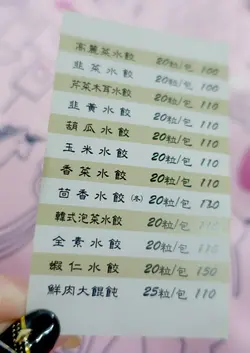 高麗菜水餃 20粒/包 100
韭菜水餃 20粒/包 100
芹菜木耳水餃 20粒/包 110
韭黃水餃 20粒/包 110
葫瓜水餃 20粒/包 110
玉米水餃 20粒/包 110
香菜水餃 20粒/包 110
茴香水餃(本) 20粒/包 130
韓式泡菜水餃 20粒/包 110
全素水餃 20粒/包 110
蝦仁水餃 20粒/包 150
鮮肉大餛飩 25粒/包 110